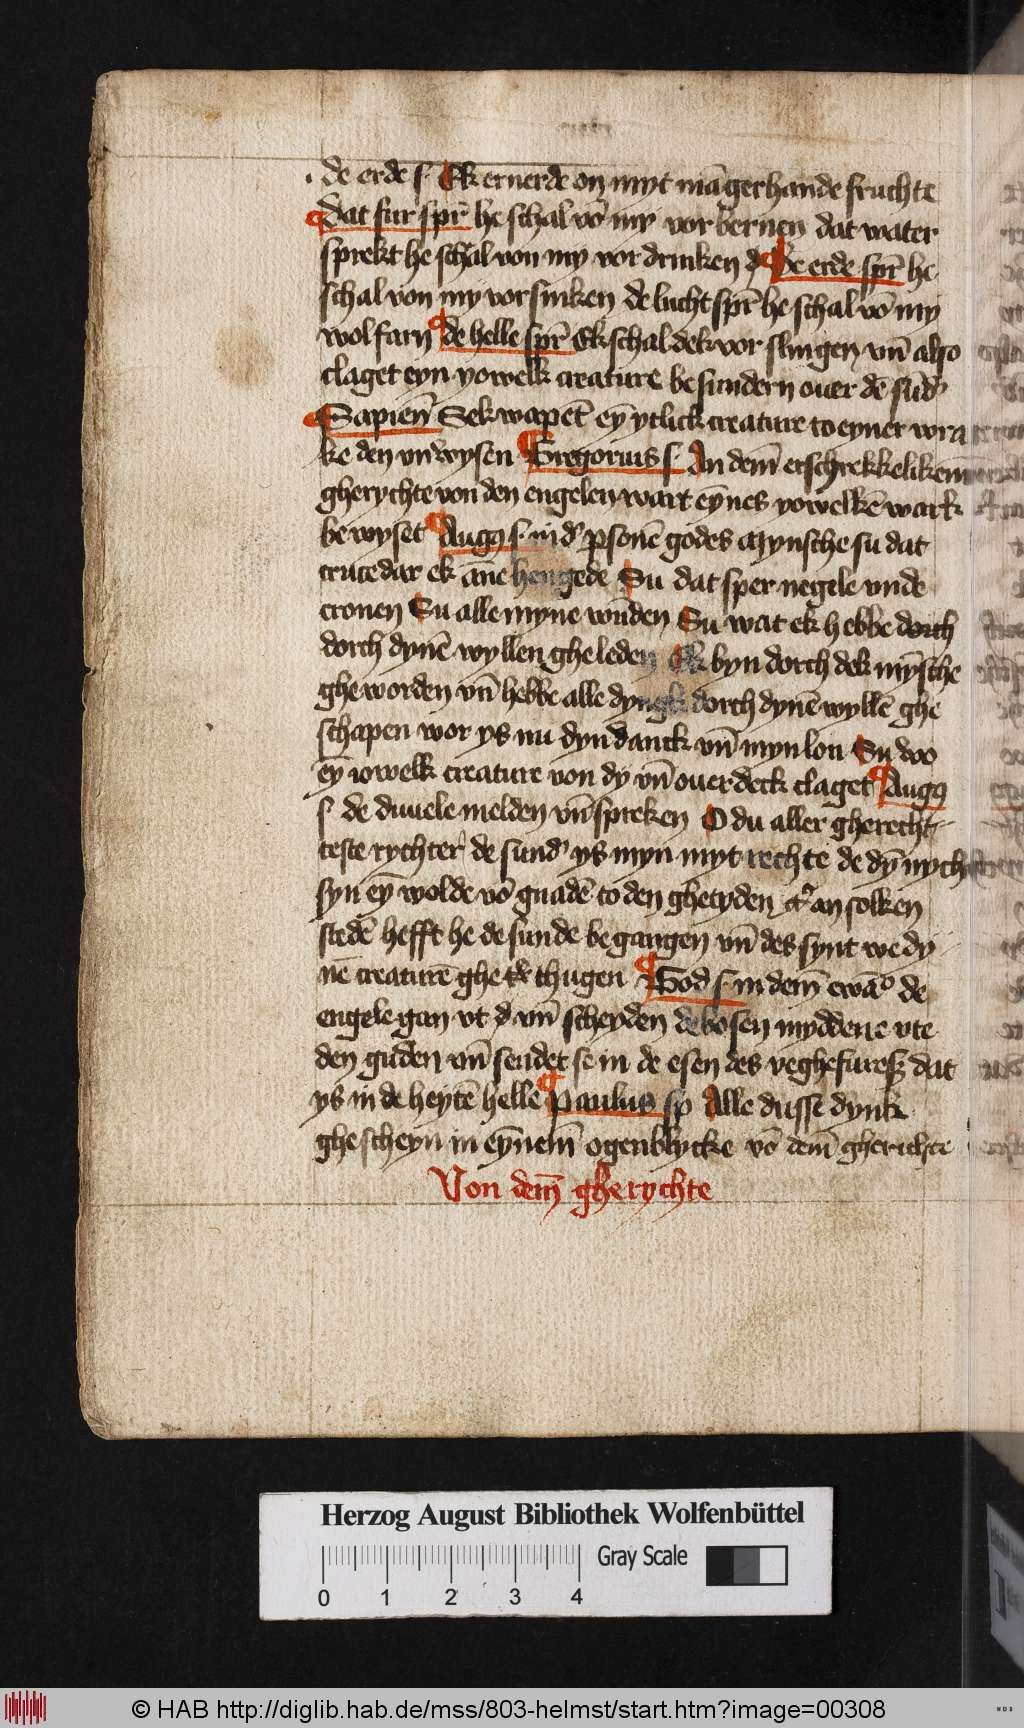 de erde s· Ek ernerde on myt mā gerhande fruchte
dat fur spr̄ he schal vō my vor bernen dat water
sprekt he schal von my vor drinken De erde spr̄ he
schal von my vor sinken de lucht spr̄ he schal vō my
wol farn de helle spr̄ Ek schal dek vor slingen vn̄ also
claget eyn yowelk creature be sundern ouer dē sūd'
Sapien̄ Sek wapēt eȳ ytlick creature to eyner wra
ke den vn wysen Gregorius s· An dem̄ erschrekkelikem̄
gherychte von den engelen wart eȳnes yowelkē wark
be wyset Aug9 s· in d' psonē godes Mynsche su dat
cruce dar ek ane hengede Su dat sper negele vnde
cronen Su alle myne wūden Su wat ek hebbe dorch
dorch dynē wyllen ghe leden Ek byn dorch dek mȳsche
ghe worden vn̄ hebbe alle dyngk dorch dynē wyllē ghe
schapen wor ys nu dyn danck vn̄ myn lon Su wo
eȳ iowelk creature von dy vn̄ ouer deck claget Aug9
s· de duuele melden vn̄ spreken O du aller gherecht
teste rychter de sund' ys myn myt rechte de dȳ nycht
syn eȳ wolde vō gnadē to den ghetyden an solken
stedē hefft he de sunde begangen vn̄ des synt we dy
nē creaturē ghe thugen God s· in dem̄ ewā° de
engele gan vt vn̄ scheyden de bosen myddene vte
den guden vn̄ sendet se in de esen des veghefures dat
ys in de heytē helle Paulus sp Alle dusse dynk
ghe scheyn in eȳnem̄ ogenblycke vō dem̄ gherichte
Von dem̄ gherychte
Herzog August Bibliothek Wolfenbüttel
Gray Scale
0 1 2 3 4
© HAB http://diglib.hab.de/mss/803-helmst/start.htm?image=00308